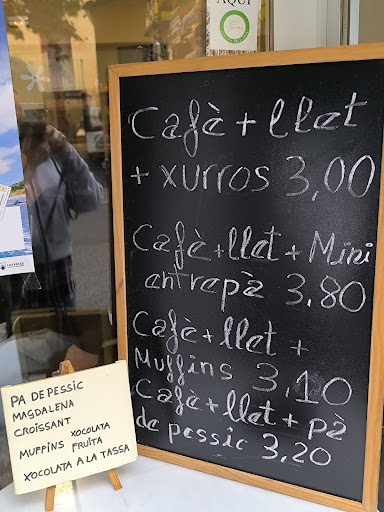 AQUÍ
Cafè + llet
+ xurros 3,00
Cafè + llet + Mini
antrapà 3,80
Cafè + llet +
Muffins 3,10
Cafè + llet + pà
de pessic 3,20
PA DE PESSIC
MAGDALENA
CROISSANT
MUFFINS XOCOLATA
FRUITA
XOCOLATA A LA TASSA